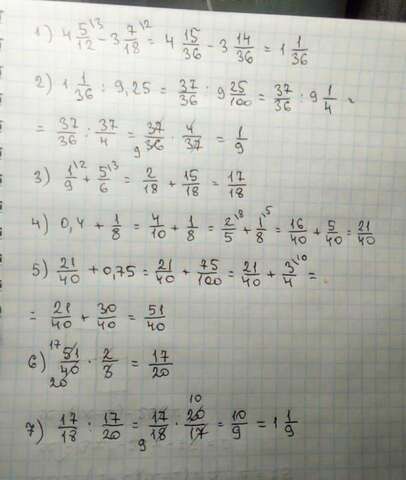 1) 4 5/12 \3 - 3 7/18 \2 = 4 15/36 - 3 14/36 = 1 1/36
2) 1 1/36 : 9,25 = 37/36 : 9 25/100 = 37/36 : 9 1/4 =
= 37/36 : 37/4 = 37/36 9 · 4/37 = 1/9
3) 1/9 \2 + 5/6 \3 = 2/18 + 15/18 = 17/18
4) 0,4 + 1/8 = 4/10 + 1/8 = 2/5 \8 + 1/8 \5 = 16/40 + 5/40 = 21/40
5) 21/40 + 0,75 = 21/40 + 75/100 = 21/40 + 3/4 \10 =
= 21/40 + 30/40 = 51/40
6) 17 51/40 20 · 2/3 = 17/20
7) 17/18 : 17/20 = 17/18 9 · 20/17 10 = 10/9 = 1 1/9